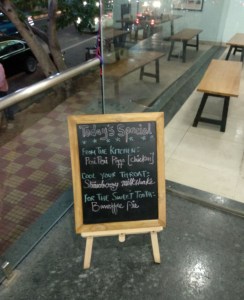 Today's Special
FROM THE KITCHEN:
Piri Piri Pizza [chicken]
COOL YOUR THROAT:
Strawberry milkshake
FOR THE SWEET TOOTH:
Banoffee Pie